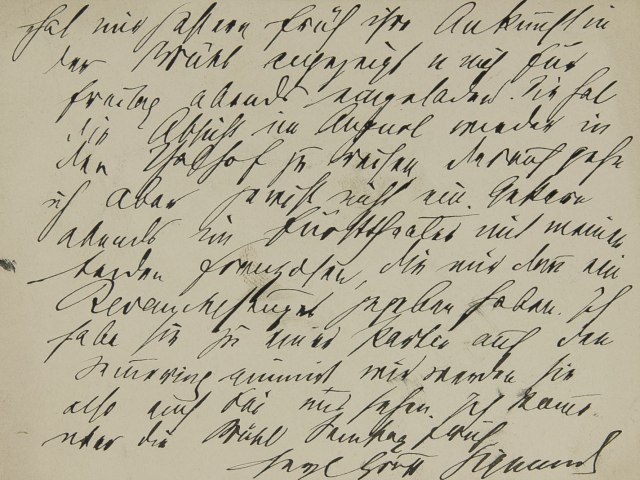 hat mir gestern früh ihre Ankunft in
der Brühl angezeigt u mich für
Freitag abends eingeladen. Sie hat
die Absicht im August wieder in
den Thalhof zu reisen darauf gehe
ich aber gewiß nicht ein. Gestern
abends im Fürsttheater mit meinen
beiden Franzosen, die mir dann ein
Revanchesouper gegeben haben. Ich
habe sie zu einer Partie auf den
Semmering animirt wir werden sie
also auch bei uns sehen. Ich komme
über die Brühl Samstag früh
Herzl Gruß Sigmund